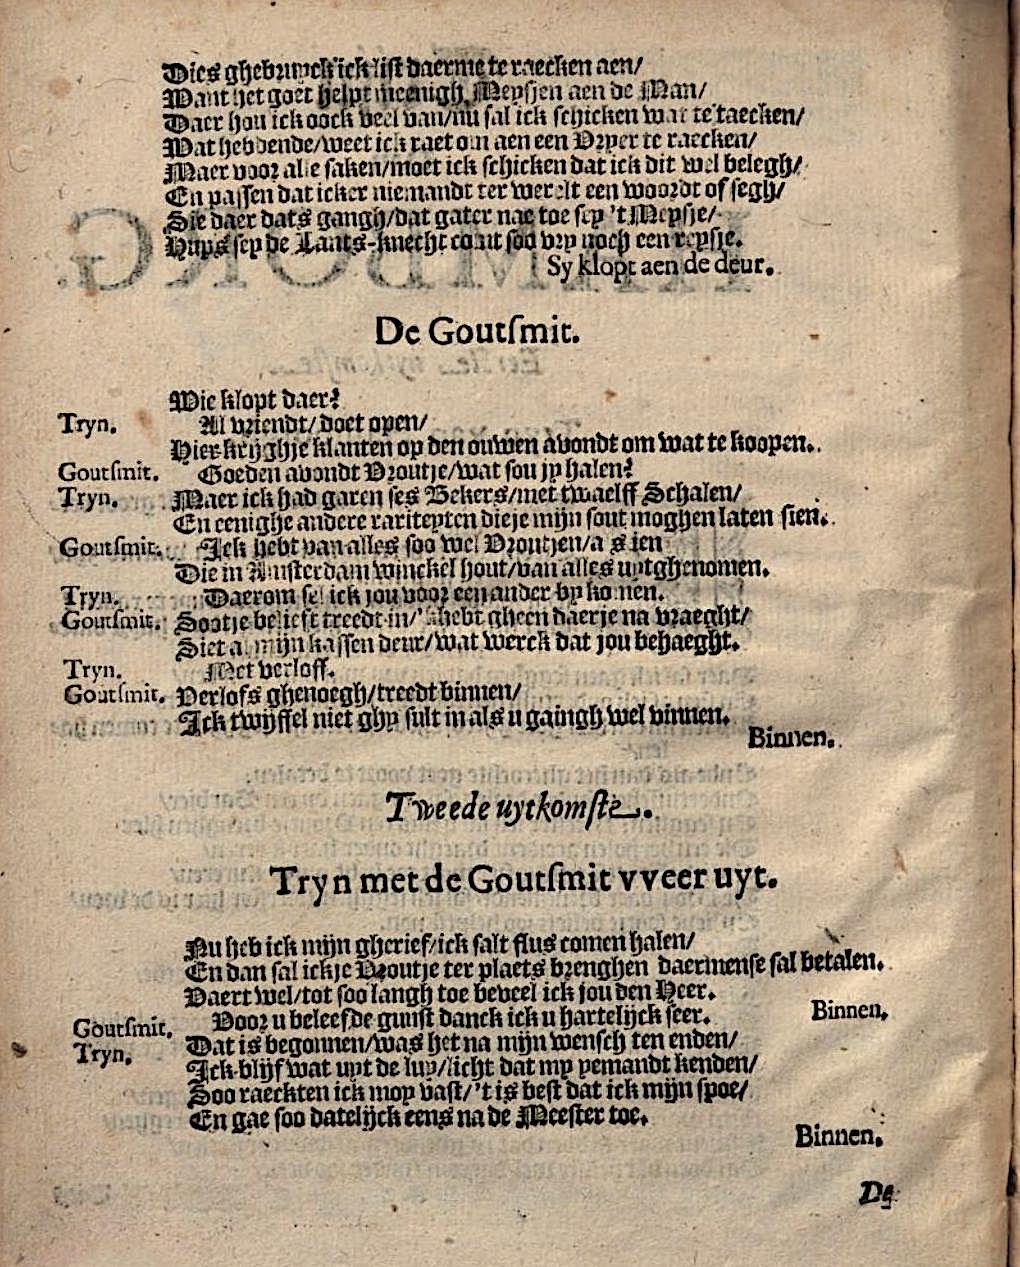 Dies ghebruyck ick list daerme te raecken aen/
Want het goet helpt meenigh Meysjen aen de Man/
Daer hou ick oock veel van/nu sal ick schicken wat te taecken/
Wat hebbende/weet ick raet om aen een Vryer te raecken/
Maer voor alle saken/moet ick schicken dat ick dit wel belegh/
En passen dat icker niemandt ter werelt een woordt of segh/
Sie daer dats gangh/dat gater nae toe sey 't Meysje/
Hups sey de Lants-knecht comt soo vry noch een reysje.
Sy klopt aen de deur.
De Goutsmit.
Wie klopt daer?
Tryn. Al vriendt/doet open/
Hier krijghje klanten op den ouwen avondt om wat te koopen.
Goutsmit. Goeden avondt Vroutje/wat sou jy halen?
Tryn. Maer ick had garen ses Bekers/met twaelff Schalen/
En eenighe andere rariteyten die je mijn sout moghen laten sien.
Goutsmit. Ick hebt van alles soo wel Vroutjen/as ien
Die in Amsterdam winckel hout/van alles uytghenomen.
Tryn. Daerom sel ick jou voor een ander by komen.
Goutsmit. Sootje belieft treedt in/'k hebt gheen daerje na vraeght/
Siet al mijn kassen deur/wat werck dat jou behaeght.
Tryn. Met verloff.
Goutsmit. Verlofs ghenoegh/treedt binnen/
Ick twijffel niet ghy sult in als u gaingh wel vinnen.
Binnen.
Tweede uytkomste.
Tryn met de Goutsmit vveer uyt.
Nu heb ick mijn gherief/ick salt flus comen halen/
En dan sal ick je Vroutje ter plaets brenghen daermense sal betalen.
Vaert wel/tot soo langh toe beveel ick jou den Heer.
Binnen.
Goutsmit. Voor u beleefde gunst danck ick u hartelijck seer.
Tryn. Dat is begonnen/was het na mijn wensch ten enden/
Ick blijf wat uyt de luy/licht dat my yemandt kenden/
Soo raeckten ick moy vast/'t is best dat ick mijn spoe/
En gae soo datelijck eens na de Meester toe.
Binnen.
De